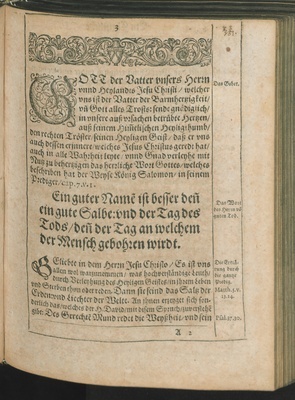 3
GOTT der Vatter vnsers Herrn
vnnd Heylandes Jesu Christi / welcher
vns ist der Vatter der Barmhertzigkeit /
vñ Gott alles Trosts: sende gnädiglich /
in vnsere auß vrsachen betrübte Hertzen,
auß seinem Himlischen Heyligthumb /
den rechten Tröster seinen Heyligen Geist / daß er vns
auch dessen erinnere welches Jesus Christus geredt hat /
auch in alle Warheit leyte / vnnd Gnad verleyhe mit
Nutz zu behertzigen das herrliche Wort Gottes welches
beschrieben hat der Weyse König Salomon / in seinem
Prediger / cap. 7. v. 1.
Das Gebet.
Ein guter Namẽ ist besser deñ
ein gute Salbe: vnd der Tag des
Tods / deñ der Tag an welchem
der Mensch gebohren wirdt.
Das Wort
GEliebte in dem Herrn Jesu Christo / Es ist vns
allen wol warzunemmen / was hochverständige Leuth /
durch Verleyhung des Heyligen Geists / in ihrem Leben
vnd Sterben thun oder reden. Dann sie seind das Saltz der
Erden vnd Liechter der Welt. An ihnen erzeiget sich
gibt: Des Gerechte Mund redet die Weyßheit / vnd sein
Matth. 5. v.
13. 14.
Psal. 37. 30.
A 2